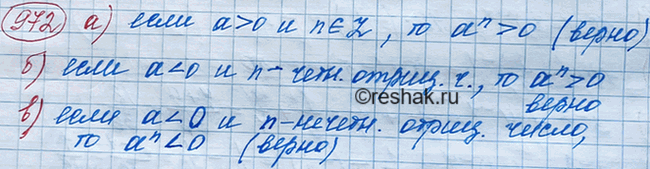 972 а) если a>0 и n∈Z, то aⁿ>0 (верно)
б) если a<0 и n – четн. отриц. ч., то aⁿ>0
©reshak.ru
верно
в) если a<0 и n – нечетн. отриц. число,
то aⁿ<0 (верно)